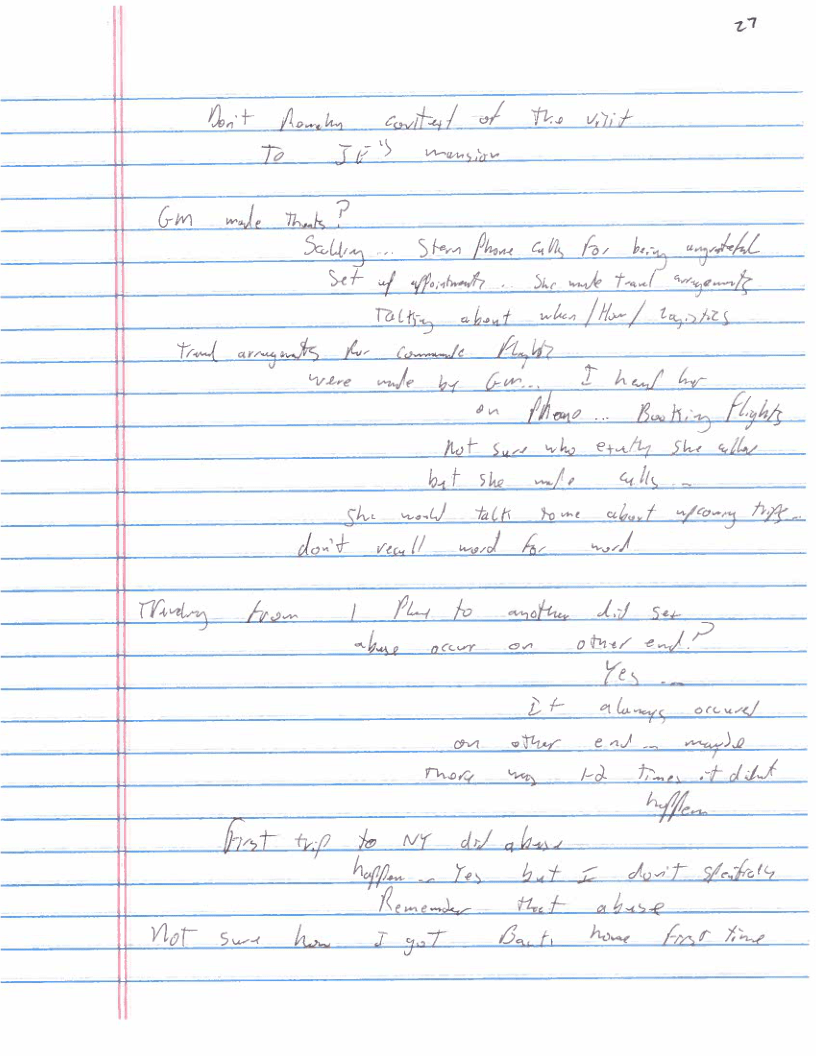 27
Don't Remember context of the visit
To JE's mansion
GM made Threats?
Scolding... Stern Phone calls for being ungrateful
Set up appointments.. She made travel arrangements
Talking about when/How/Logistics
travel arrangments for commercial Flights
were made by Gm... I heard her
on Phone... Booking Flights
Not sure who exactly she called
but she made calls...
She would talk to me about upcoming trips...
don't recall word for word
Traveling from 1 Place to another did sex
abuse occur on other end?
Yes ...
It always occured
on other end... maybe
There was 1-2 times it didnt
happen
First trip to NY did abuse
happen... Yes but I don't specificly
Remember that abuse
Not sure how I got Back home first time